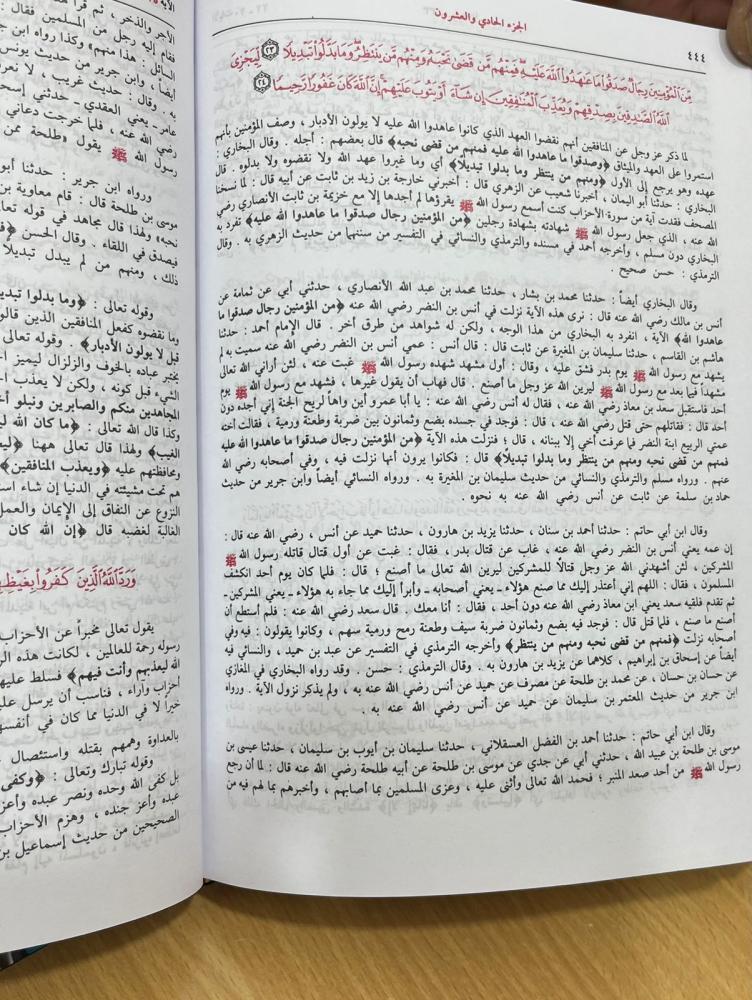 ٤٤٤
الجزء الحادي والعشرون
مِّنَ ٱلْمُؤْمِنِينَ رِجَالٌ صَدَقُوا۟ مَا عَـٰهَدُوا۟ ٱللَّهَ عَلَيْهِ فَمِنْهُم مَّن قَضَىٰ نَحْبَهُۥ وَمِنْهُم مَّن يَنتَظِرُ وَمَا بَدَّلُوا۟ تَبْدِيلًا ٢٣ لِّيَجْزِىَ
ٱللَّهُ ٱلصَّـٰدِقِينَ بِصِدْقِهِمْ وَيُعَذِّبَ ٱلْمُنَـٰفِقِينَ إِن شَآءَ أَوْ يَتُوبَ عَلَيْهِمْ إِنَّ ٱللَّهَ كَانَ غَفُورًا رَّحِيمًا ٢٤
لما ذكر عز وجل عن المنافقين أنهم نقضوا العهد الذي كانوا عاهدوا الله عليه لا يولون الأدبار ، وصف المؤمنين بأنهم
استمروا على العهد والميثاق ﴿وصدقوا ما عاهدوا الله عليه فمنهم من قضى نحبه﴾ قال بعضهم : أجله . وقال البخاري :
عهده وهو يرجع إلى الأول ﴿ومنهم من ينتظر وما بدلوا تبديلاً﴾ أي وما غيروا عهد الله ولا نقضوه ولا بدلوه . قال
البخاري : حدثنا أبو اليمان ، أخبرنا شعيب عن الزهري قال : أخبرني خارجة بن زيد بن ثابت عن أبيه قال : لما نسخنا
المصحف فقدت آية من سورة الأحزاب كنت أسمع رسول الله ﷺ يقرؤها لم أجدها إلا مع خزيمة بن ثابت الأنصاري رضي
الله عنه ، الذي جعل رسول الله ﷺ شهادته بشهادة رجلين ﴿من المؤمنين رجال صدقوا ما عاهدوا الله عليه﴾ تفرد به
البخاري دون مسلم ، وأخرجه أحمد في مسنده والترمذي والنسائي في التفسير من سننهما من حديث الزهري به . وقال
الترمذي : حسن صحيح .
وقال البخاري أيضاً : حدثنا محمد بن بشار ، حدثنا محمد بن عبد الله الأنصاري ، حدثني أبي عن ثمامة عن
أنس بن مالك رضي الله عنه قال : نرى هذه الآية نزلت في أنس بن النضر رضي الله عنه ﴿من المؤمنين رجال صدقوا ما
عاهدوا الله﴾ الآية ، انفرد به البخاري من هذا الوجه ، ولكن له شواهد من طرق أخر . قال الإمام أحمد : حدثنا
هاشم بن القاسم ، حدثنا سليمان بن المغيرة عن ثابت قال : قال أنس : عمي أنس بن النضر رضي الله عنه سميت به لم
يشهد مع رسول الله ﷺ يوم بدر فشق عليه ، وقال : أول مشهد شهده رسول الله ﷺ غبت عنه ، لئن أراني الله تعالى
مشهداً فيما بعد مع رسول الله ﷺ ليرين الله عز وجل ما أصنع . قال فهاب أن يقول غيرها ، فشهد مع رسول الله ﷺ يوم
أحد فاستقبل سعد بن معاذ رضي الله عنه ، فقال له أنس رضي الله عنه : يا أبا عمرو أين واهاً لريح الجنة إني أجده دون
أحد قال : فقاتلهم حتى قتل رضي الله عنه ، قال : فوجد في جسده بضع وثمانون بين ضربة وطعنة ورمية ، فقالت أخته
عمتي الربيع ابنة النضر فما عرفت أخي إلا ببنانه ، قال ؛ فنزلت هذه الآية ﴿من المؤمنين رجال صدقوا ما عاهدوا الله عليه
فمنهم من قضى نحبه ومنهم من ينتظر وما بدلوا تبديلاً﴾ قال : فكانوا يرون أنها نزلت فيه ، وفي أصحابه رضي الله
عنهم . ورواه مسلم والترمذي والنسائي من حديث سليمان بن المغيرة به . ورواه النسائي أيضاً وابن جرير من حديث
حماد بن سلمة عن ثابت عن أنس رضي الله عنه به نحوه .
وقال ابن أبي حاتم : حدثنا أحمد بن سنان ، حدثنا يزيد بن هارون ، حدثنا حميد عن أنس ، رضي الله عنه قال :
إن عمه يعني أنس بن النضر رضي الله عنه ، غاب عن قتال بدر ، فقال : غبت عن أول قتال قاتله رسول الله ﷺ
المشركين ، لئن أشهدني الله عز وجل قتالاً للمشركين ليرين الله تعالى ما أصنع ؛ قال : فلما كان يوم أحد انكشف
المسلمون ، فقال : اللهم إني أعتذر إليك مما صنع هؤلاء ـ يعني أصحابه ـ وأبرأ إليك مما جاء به هؤلاء ـ يعني المشركين ـ
ثم تقدم فلقيه سعد يعني ابن معاذ رضي الله عنه دون أحد ، فقال : أنا معك . قال سعد رضي الله عنه : فلم أستطع أن
أصنع ما صنع ، فلما قتل قال : فوجد فيه بضع وثمانون ضربة سيف وطعنة رمح ورمية سهم ، وكانوا يقولون : فيه وفي
أصحابه نزلت ﴿فمنهم من قضى نحبه ومنهم من ينتظر﴾ وأخرجه الترمذي في التفسير عن عبد بن حميد ، والنسائي فيه
أيضاً عن إسحاق بن إبراهيم ، كلاهما عن يزيد بن هارون به . وقال الترمذي : حسن . وقد رواه البخاري في المغازي
عن حسان بن حسان ، عن محمد بن طلحة عن مصرف عن حميد عن أنس رضي الله عنه به ، ولم يذكر نزول الآية . ورواه
ابن جرير من حديث المعتمر بن سليمان عن حميد عن أنس رضي الله عنه به .
وقال ابن أبي حاتم : حدثنا أحمد بن الفضل العسقلاني ، حدثنا سليمان بن أيوب بن سليمان ، حدثنا عيسى بن
موسى بن طلحة بن عبيد الله ، حدثني أبي عن جدي عن موسى بن طلحة عن أبيه طلحة رضي الله عنه قال : لما أن رجع
رسول الله ﷺ من أحد صعد المنبر ؛ فحمد الله تعالى وأثنى عليه ، وعزى المسلمين بما أصابهم ، وأخبرهم بما لهم فيه من
الأجر والذخر ، ثم قرأ هذه
فقام إليه رجل من المسلمين
السائل : هذا منهم» وكذا رواه ابن
أيضاً ، وابن جرير من حديث يونس
به . وقال : حديث غريب ، لا نعرفه
عامر ـ يعني العقدي ـ حدثني إسحاق
رضي الله عنه ، فلما خرجت دعاني
رسول الله ﷺ يقول «طلحة ممن
ورواه ابن جرير : حدثنا أبو
موسى بن طلحة قال : قام معاوية بن
نحبه» ولهذا قال مجاهد في قوله تعالى
فيصدق في اللقاء . وقال الحسن ﴿
ذلك ، ومنهم من لم يبدل تبديلاً
وقوله تعالى : ﴿وما بدلوا تبديلاً
وما نقضوه كفعل المنافقين الذين قالوا
قبل لا يولون الأدبار﴾ . وقوله تعالى
يختبر عباده بالخوف والزلزال ليميز
الشيء قبل كونه ، ولكن لا يعذب
المجاهدين منكم والصابرين ونبلو
وكذا قال الله تعالى : ﴿ما كان الله
الغيب﴾ ولهذا قال تعالى ههنا ﴿
ومحافظتهم عليه ﴿ويعذب المنافقين﴾
هم تحت مشيئته في الدنيا إن شاء
النزوع عن النفاق إلى الإيمان والعمل
الغالبة لغضبه قال ﴿إن الله كان
وَرَدَّ ٱللَّهُ ٱلَّذِينَ كَفَرُوا۟ بِغَيْظِهِمْ
يقول تعالى مخبراً عن الأحزاب
رسوله رحمة للعالمين ، لكانت هذه
الله ليعذبهم وأنت فيهم﴾ فسلط عليهم
أحزاب وآراء ، فناسب أن يرسل
خيراً لا في الدنيا مما كان في أنفسهم
بالعداوة وهمهم بقتله واستئصال
وقوله تبارك وتعالى : ﴿وكفى
بل كفى الله وحده ونصر عبده وأعز
عبده وأعز جنده ، وهزم الأحزاب
الصحيحين من حديث إسماعيل بن